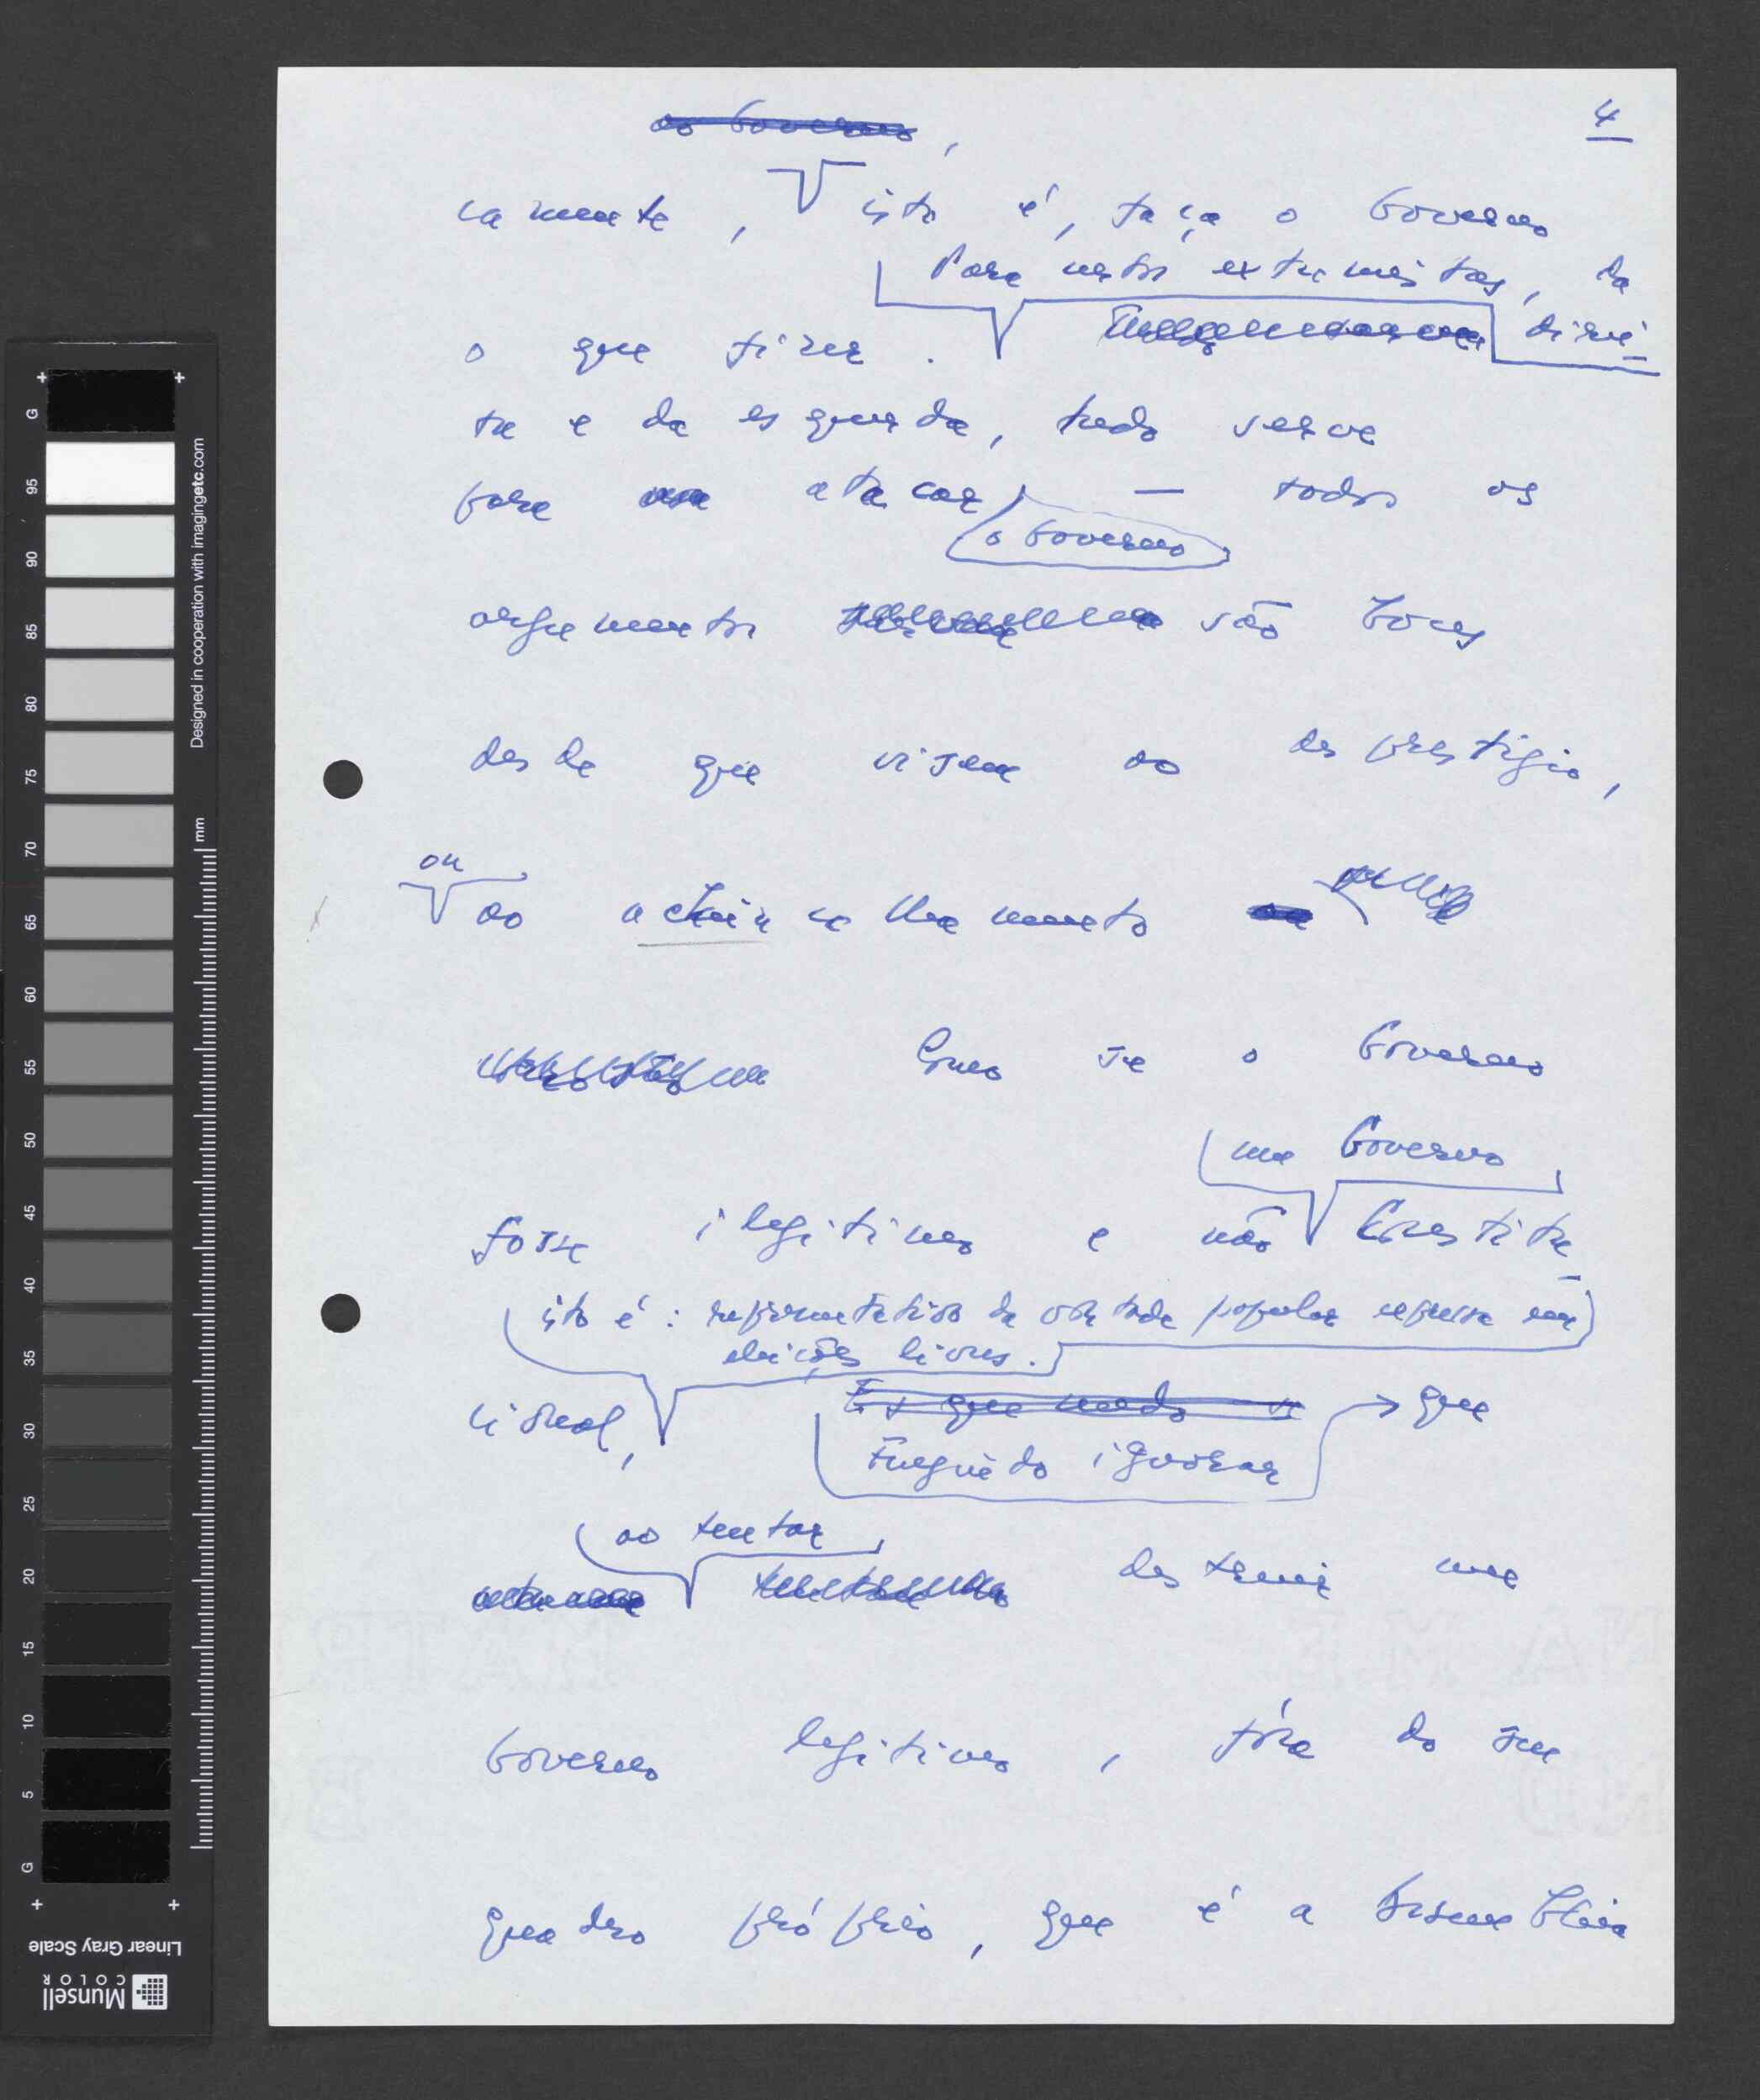 4
ao Governo,
camente, isto é, faça o Governo
Para estes extremistas, da
o que fizer. direi-
ta e da esquerda, tudo serve
para atacar — todos os
o Governo
argumentos são bons
desde que visem ao desprestígio,
ou
ao achincalhamento
Como se o Governo
um Governo
fosse ilegítimo e não Constitu-
isto é: representativo da vontade popular expressa em
eleições livres.
cional, que
Fingindo ignorar
ao tentar
destruir um
Governo legítimo, fóra do seu
quadro próprio, que é a Assembleia
G
95
90
85
80
75
70
65
60
55
50
45
40
35
30
25
20
15
10
5
G
mm
Designed in cooperation with imagingetc.com
Linear Gray Scale
Munsell
COLOR